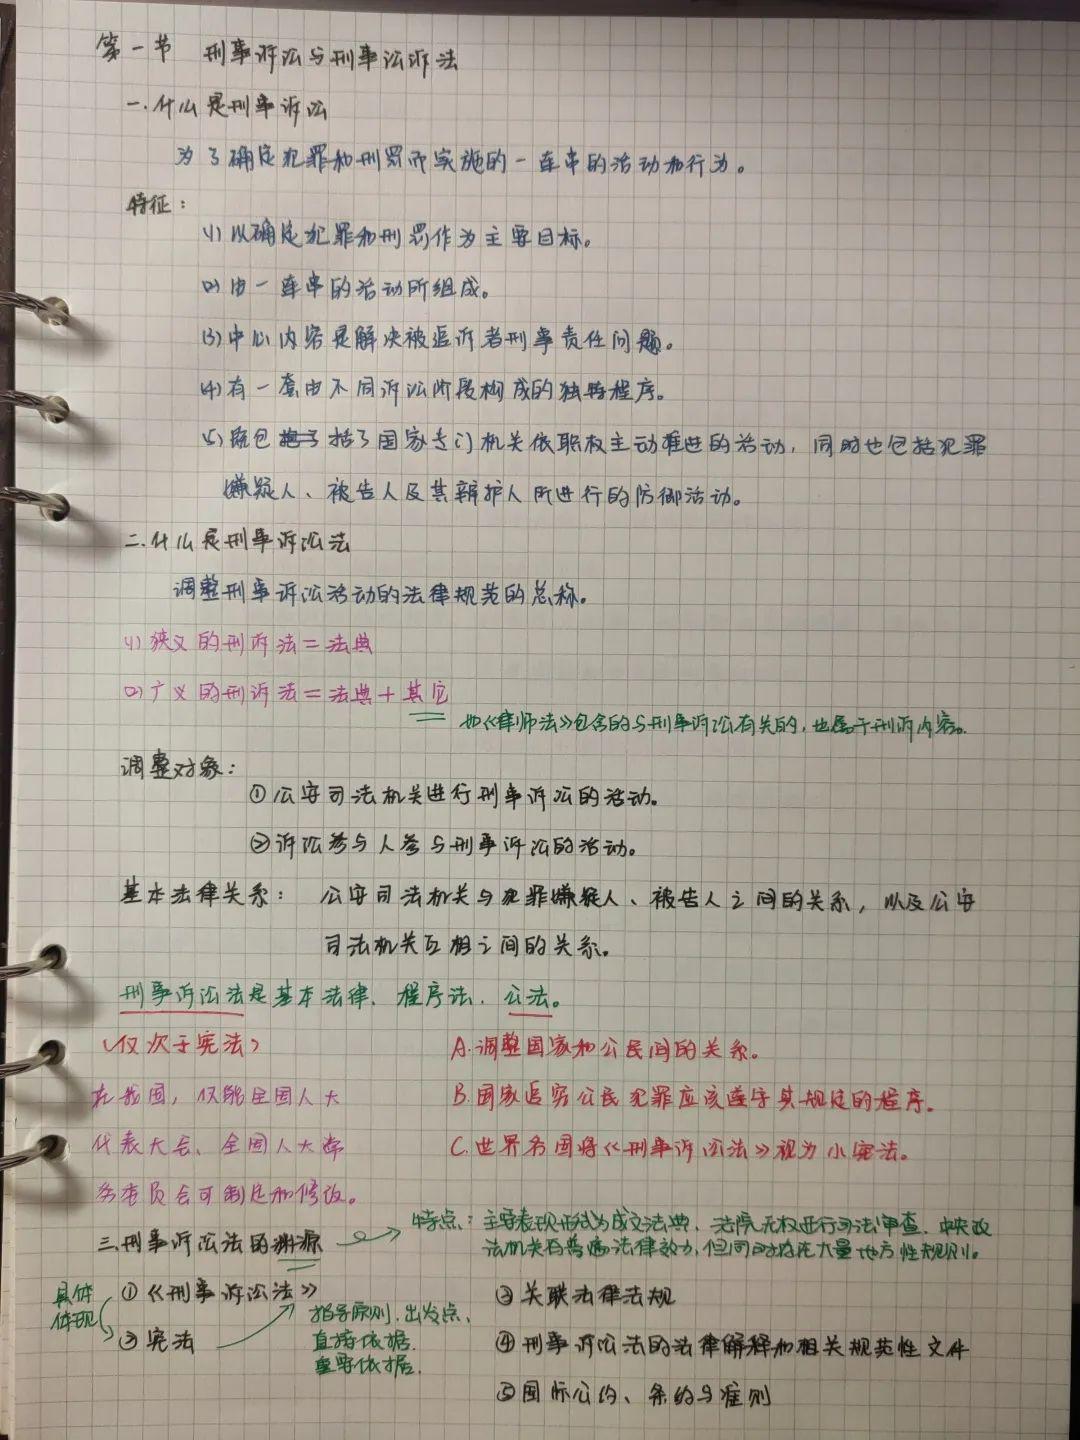 第一节 刑事诉讼与刑事讼诉法
一.什么是刑事诉讼
为了确定犯罪和刑罚而实施的一连串的活动和行为。
特征：
(1)以确定犯罪和刑罚作为主要目标。
(2)由一连串的活动所组成。
(3)中心内容是解决被追诉者刑事责任问题。
(4)有一套由不同诉讼阶段构成的独特程序。
(5)既包括了国家专门机关依职权主动推进的活动，同时也包括犯罪
嫌疑人、被告人及其辩护人所进行的防御活动。
二.什么是刑事诉讼法
调整刑事诉讼活动的法律规范的总称。
(1)狭义的刑诉法＝法典
(2)广义的刑诉法＝法典＋其它
如《律师法》包含的与刑事诉讼有关的，也属于刑诉内容。
调整对象：
①公安司法机关进行刑事诉讼的活动。
②诉讼参与人参与刑事诉讼的活动。
基本法律关系： 公安司法机关与犯罪嫌疑人、被告人之间的关系，以及公安
司法机关互相之间的关系。
刑事诉讼法是基本法律、程序法、公法。
(仅次于宪法)
在我国，仅能全国人大
代表大会、全国人大常
务委员会可制定和修改。
A.调整国家和公民间的关系。
B.国家追究公民犯罪应该遵守其规定的程序。
C.世界各国将《刑事诉讼法》视为小宪法。
三.刑事诉讼法的渊源
特点：主要表现形式为成文法典、法院无权进行司法审查、中央政
法机关有普遍法律效力，但同时存在大量地方性规则。
具体
体现
①《刑事诉讼法》
②宪法
指导原则、出发点、
直接依据、
重要依据。
③关联法律法规
④刑事诉讼法的法律解释和相关规范性文件
⑤国际公约、条约与准则